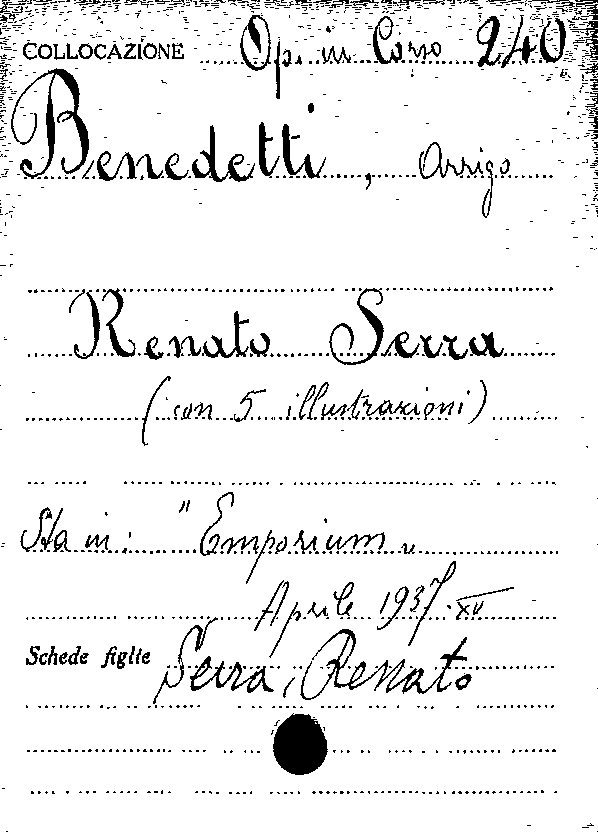 COLLOCAZIONE Op. in Corso 240
Benedetti, Arrigo
Renato Serra
(con 5 illustrazioni)
Sta in: "Emporium„
Aprile 1937-XV
Schede figlie Serra, Renato